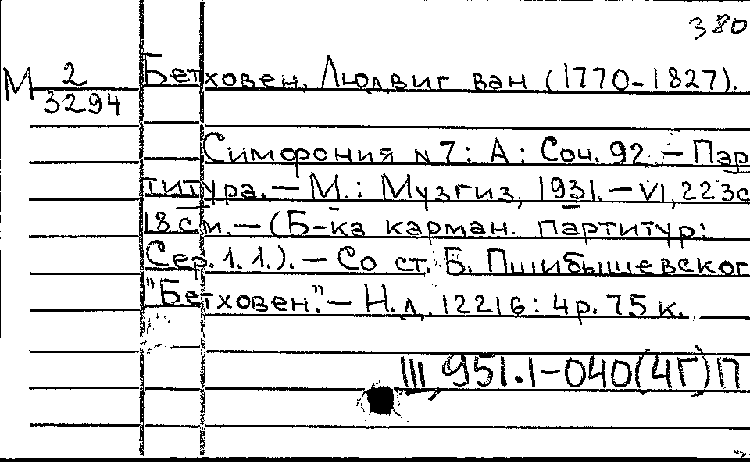 380
М 2/3294 Бетховен, Людвиг ван (1770-1827).
Симфония N 7: А: Соч. 92. — Пар
титура. — М.: Музгиз, 1931. — VI, 223с
18 см. — (Б-ка карман. партитур:
Сер. 1. 1.). — Со ст. Б. Пшибышевског
"Бетховен." — Н.д. 12216: 4р. 75 к.
III, 951.1-040(4Г)П